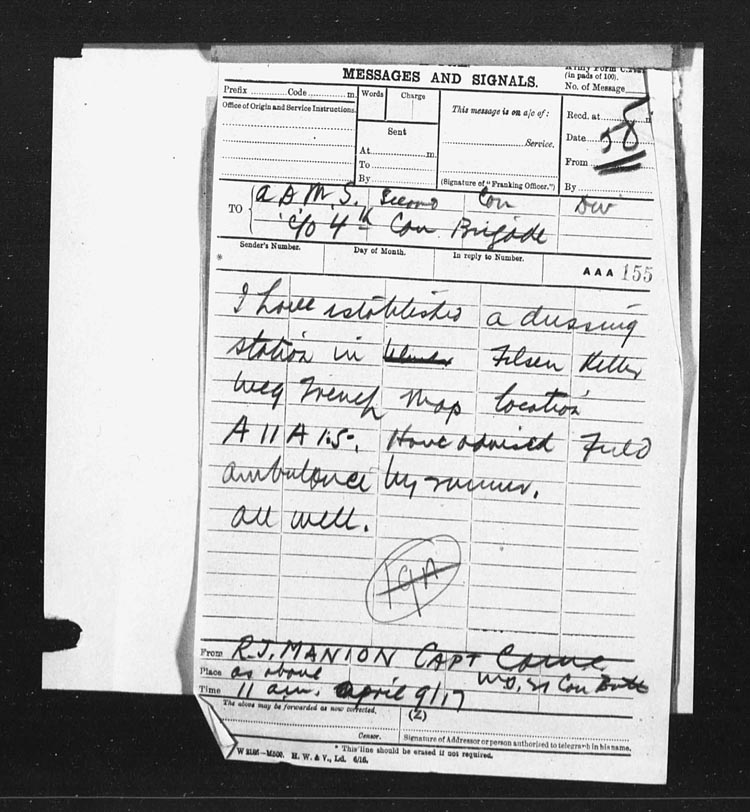 MESSAGES AND SIGNALS.
Army Form C.
(in pads of 100).
No. of Message
Prefix Code m.
Words Charge
This message is on a/c of:
Recd. at m
Office of Origin and Service Instructions.
Sent
Service.
Date
At m.
From
To
By
(Signature of "Franking Officer.")
By
58
TO
A D M. S. Second Can Div
c/o 4th Can Brigade
Sender's Number.
Day of Month.
In reply to Number.
* AAA 155
I have established a dressing
station in Felsen Keller
Weg Trench Map location
A 11 A 1.5. Have advised Field
ambulance by runner.
all well.
From R.J. MANION CAPT CAMC
Place as above M.O. 21 Can Batt
Time 11 am. april 9/17
The above may be forwarded as now corrected. (Z)
Censor. Signature of Addressor or person authorised to telegraph in his name.
* This line should be erased if not required.
H. W. & V., Ld. 6/16.